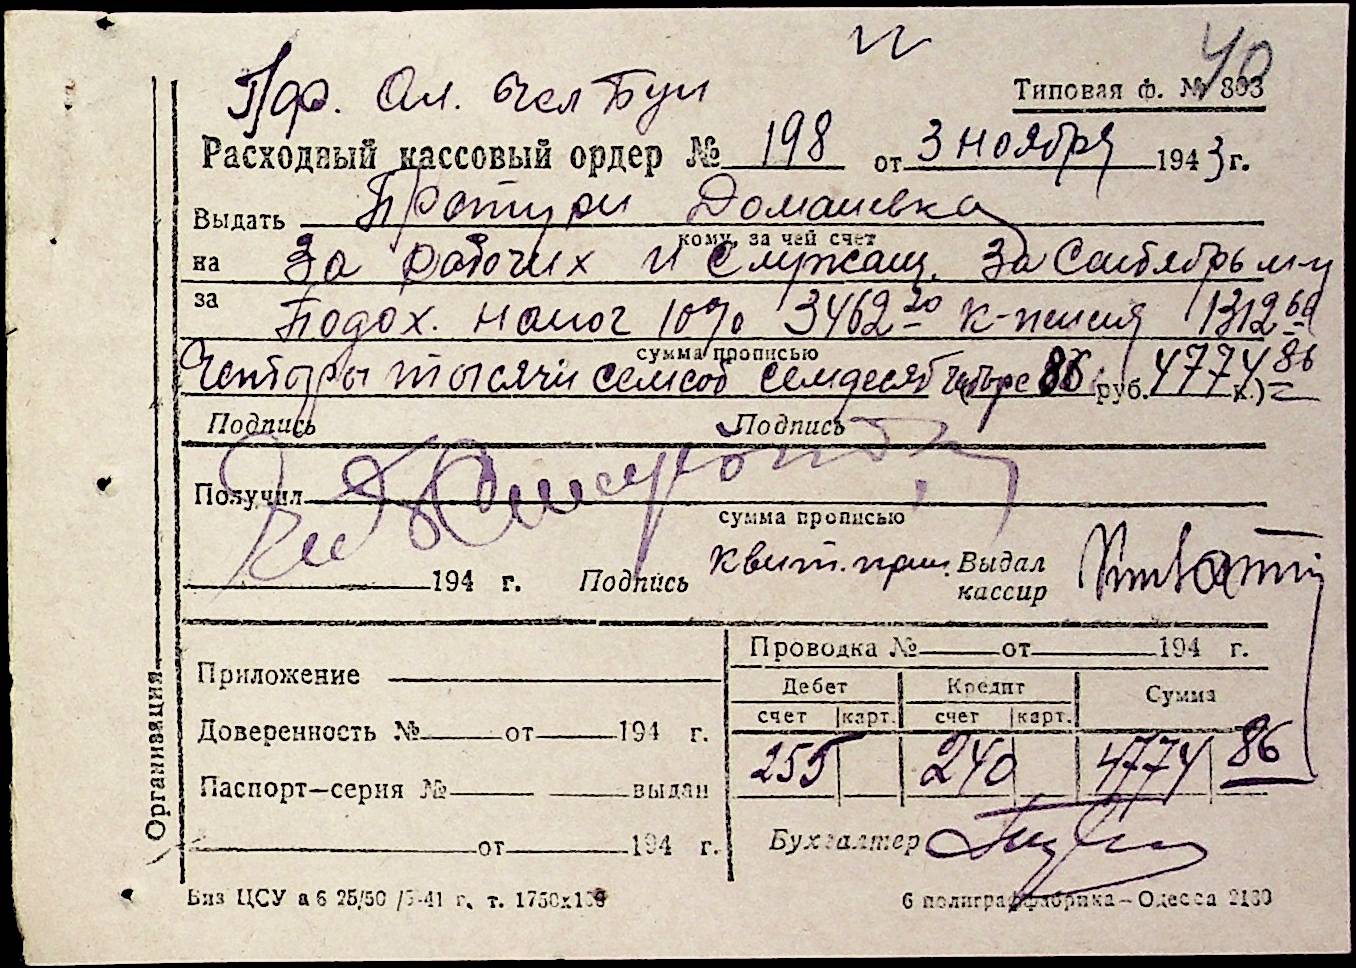 40
Типовая ф. № 803
Расходный кассовый ордер № 198 от 3 ноября 1943 г.
Выдать Претури Доманевка
кому, за чей счет
на За рабочих и служащ. За Сентябрь м-ц
за Подох. налог 10% 3462 20 к-пенсия 1312 66
сумма прописью
Четыры тысячи семсот семдесят четыре 86 руб. 4774 86 к.)
Подпись Подпись
Получил
сумма прописью
194 г. Подпись Квит. прил. Выдал
кассир
Проводка № от 194 г.
Приложение
Дебет Кредит Сумма
счет карт. счет карт.
Доверенность № от 194 г.
255 240 4774 86
Паспорт—серия № выдан
от 194 г.
Бухгалтер
Организация
Виз ЦСУ а 6 25/50 /5-41 г. т. 1750х1
6 полиграффабрика—Одесса 2180